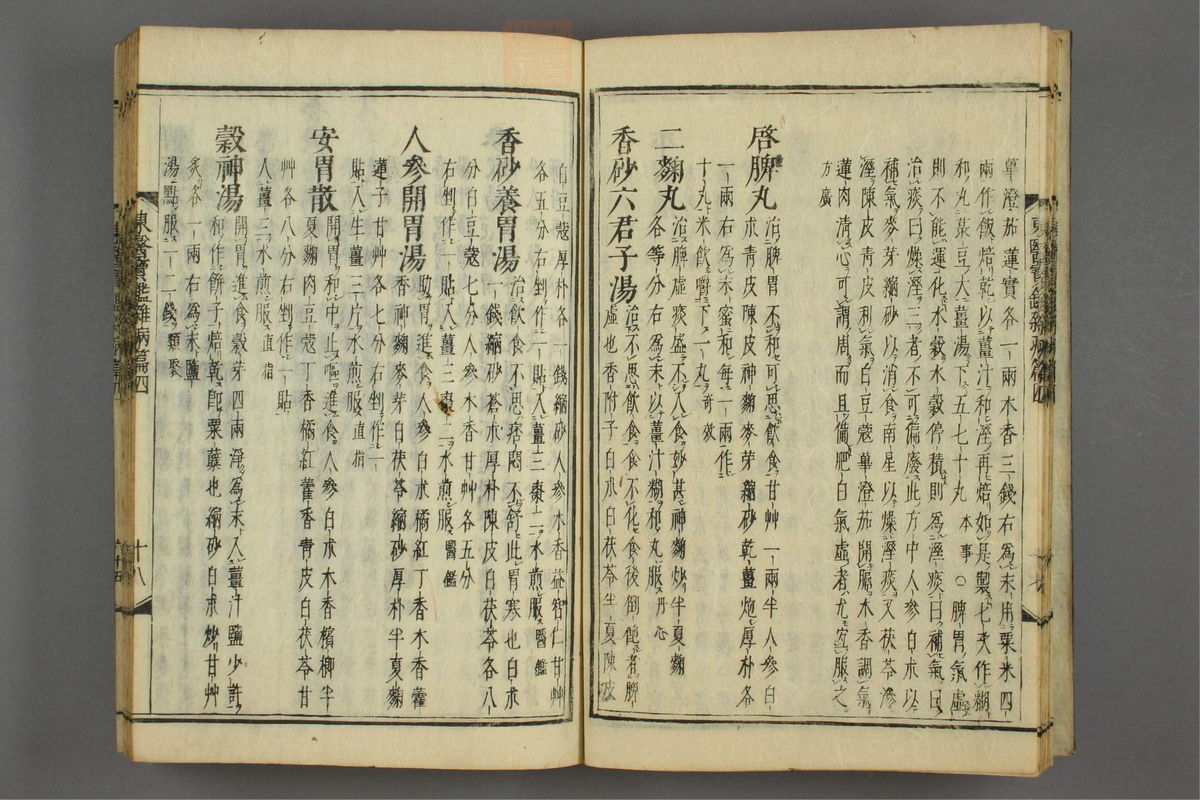 蓽澄茄蓮實各一兩木香三錢右爲末用粟米四
兩作飯焙乾以薑汁和溼再焙如是製七次作糊
和丸菉豆大薑湯下五七十丸 本事 ○脾胃氣虛
則不能運化水穀水穀停積則爲溼痰曰補氣曰
治痰曰燥溼三者不可偏廢此方中人參白朮以
補氣麥芽縮砂以消食南星以燥溼痰又茯苓滲
溼陳皮靑皮利氣也白豆蔻蓽澄茄開膈木香調氣
蓮肉淸心可謂周而且備肥白氣虛者尤宜服之
方廣
啓脾丸 治脾胃不和可思飮食甘艸一兩半人參白
朮靑皮陳皮神麴麥芽縮砂乾薑炮厚朴各
一兩右爲末蜜和每一兩作
十丸米飮嚼下一丸 奇效
二麴丸 治脾虛痰盛不入食妙甚神麴炒半夏麴
各等分右爲末以薑汁糊和丸服 丹心
香砂六君子湯 治不思飮食食不化食後倒飽者脾
虛也香附子白朮白茯苓半夏陳皮
白豆蔻厚朴各一錢縮砂人參木香益智仁甘艸
各五分右剉作一貼入薑三棗二水煎服 醫鑑
香砂養胃湯 治飮食不思痞悶不舒此胃寒也白朮
一錢縮砂蒼朮厚朴陳皮白茯苓各八
分白豆蔻七分人參木香甘艸各五分
右剉作一貼入薑三棗二水煎服 醫鑑
人參開胃湯 助胃進食人參白朮橘紅丁香木香藿
香神麴麥芽白茯苓縮砂厚朴半夏麴
蓮子甘艸各七分右剉作一
貼入生薑三片水煎服 直指
安胃散 開胃和中止嘔進食人參白朮木香檳榔半
夏麴肉豆蔻丁香橘紅藿香靑皮白茯苓甘
艸各八分右剉作一貼
入薑三水煎服 直指
穀神湯 開胃進食穀芽四兩淨爲末入薑汁鹽少許
和作餠子焙乾卽粟蘖也縮砂白朮炒甘艸
炙各一兩右爲末鹽
湯點服一二錢 類聚
東醫寶鑑雜病篇四
十八